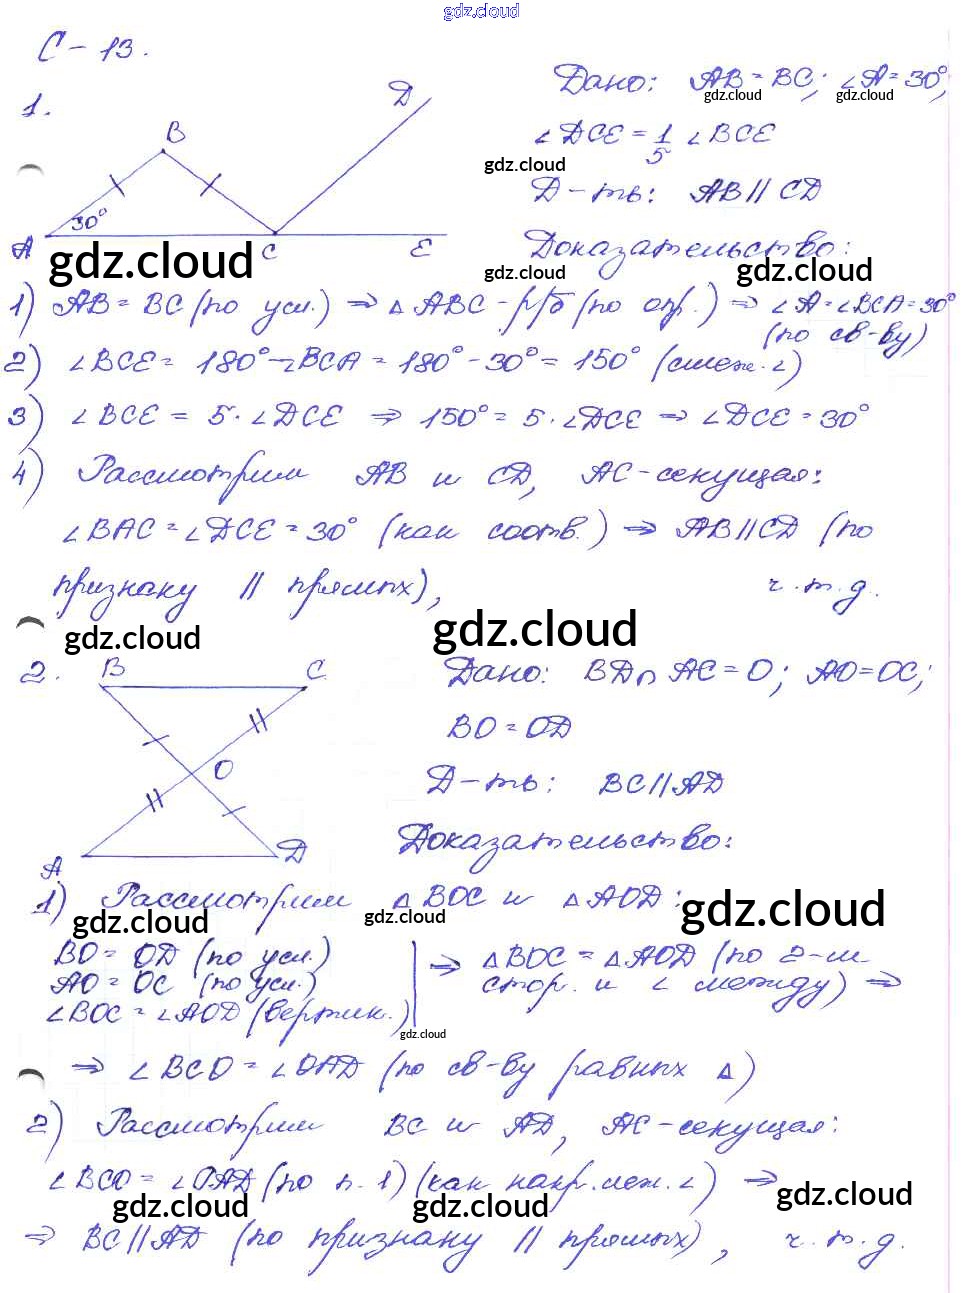 gdz.cloud
С-13.
1.
Дано: AB=BC; ∠A=30°;
gdz.cloud gdz.cloud
∠DCE = 1/5 ∠BCE
gdz.cloud
Д-ть: AB∥CD
B D 30° A C E
Доказательство:
gdz.cloud gdz.cloud gdz.cloud
1) AB=BC (по усл.) ⇒ △ABC-р/б (по опр.) ⇒ ∠A=∠BCA=30°
(по св-ву)
2) ∠BCE=180°-∠BCA=180°-30°=150° (смеж.∠)
3) ∠BCE = 5·∠DCE ⇒ 150°=5·∠DCE ⇒ ∠DCE=30°
4) Рассмотрим AB и CD, AC-секущая:
∠BAC=∠DCE=30° (как соотв.) ⇒ AB∥CD (по
признаку ∥ прямых), ч.т.д.
gdz.cloud gdz.cloud
2.
B C O A D
Дано: BD∩AC=O; AO=OC;
BO=OD
Д-ть: BC∥AD
Доказательство:
1) Рассмотрим △BOC и △AOD:
gdz.cloud gdz.cloud gdz.cloud
BO=OD (по усл.)
AO=OC (по усл.)
∠BOC=∠AOD (вертик.)
⇒ △BOC=△AOD (по 2-м
стор. и ∠ между) ⇒
gdz.cloud
⇒ ∠BCO=∠OAD (по св-ву равных △)
2) Рассмотрим BC и AD, AC-секущая:
∠BCO=∠OAD (по п.1) (как накр.леж.∠) ⇒
gdz.cloud gdz.cloud gdz.cloud
⇒ BC∥AD (по признаку ∥ прямых), ч.т.д.